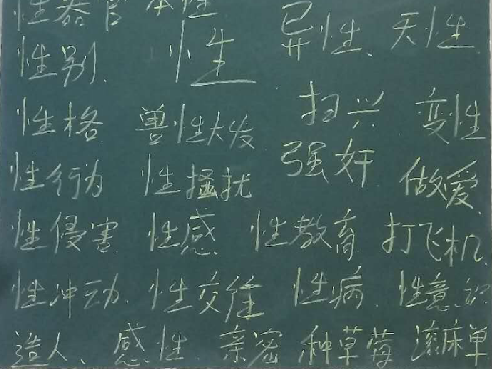 性器官 本性
性别. 性 异性、天性
性格 兽性大发 扫兴 变性
性行为 性骚扰 强奸 做爱
性侵害 性感 性教育 打飞机
性冲动. 性交往 性病. 性意识
造人、感性 亲密 种草莓 滚床单